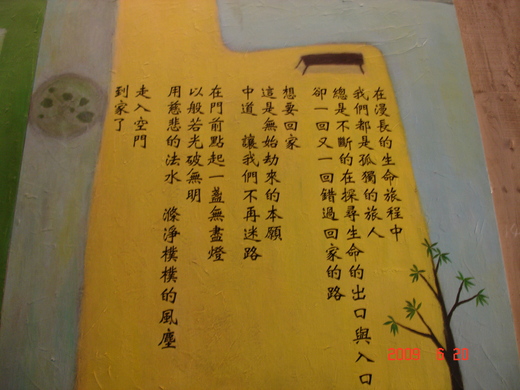 在漫長的生命旅程中
我們都是孤獨的旅人
總是不斷的在探尋生命的出口與入口
卻一回又一回錯過回家的路
想要回家
這是無始劫來的本願
中道 讓我們不再迷路
在門前點起一盞無盡燈
以般若光破無明
用慈悲的法水 滌淨樸樸的風塵
走入空門
到家了
2008 6 20